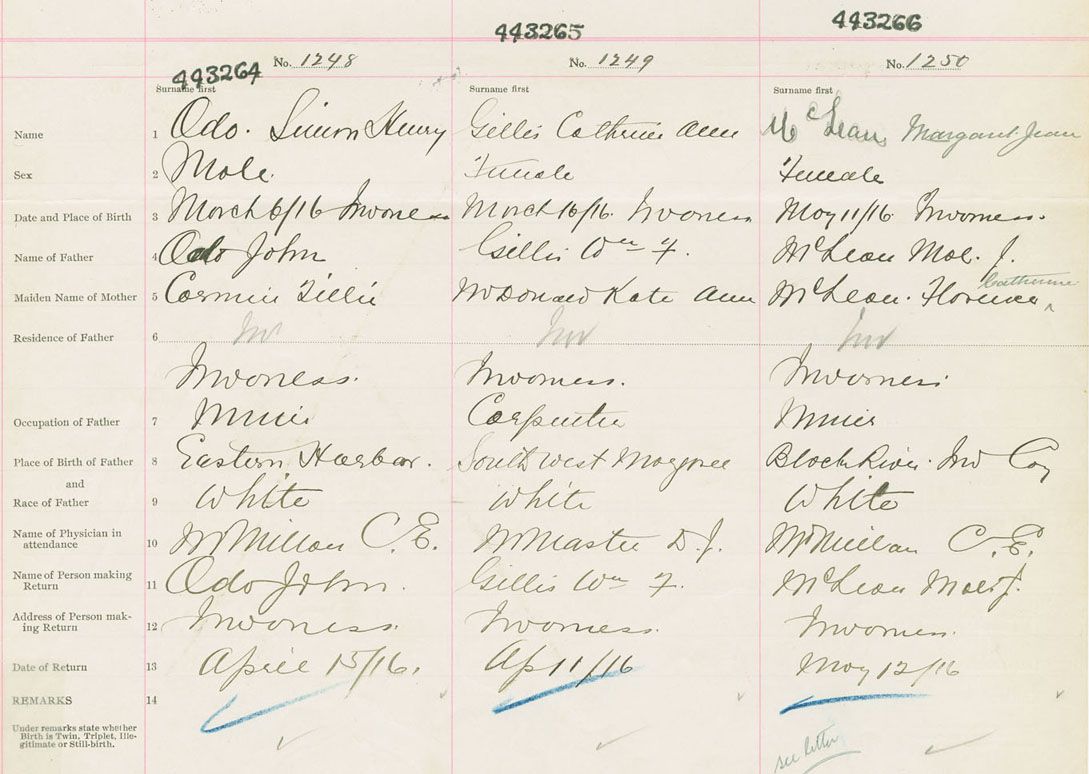 443264 443265 443266
No. 1248 No. 1249 No. 1250
Surname first Surname first Surname first
Name 1 Odo. Simon Henry Gillis Catherine Ann McLean Margaret Jean
Sex 2 Male. Female Female
Date and Place of Birth 3 March 6/16 Inverness March 16/16. Inverness May 11/16 Inverness.
Name of Father 4 Odo John Gillis Wm F. McLean Mal. J.
Catherine
Maiden Name of Mother 5 Tillie McDonald Kate Ann McLean. Florence ^
Residence of Father 6 Inv Inv Inv
Inverness. Inverness. Inverness
Occupation of Father 7 Miner Carpenter Miner
Place of Birth of Father 8 Eastern Harbor. South West Margaree Black River. Inv Coy
and
Race of Father 9 White White White
Name of Physician in
attendance 10 McMillan C. E. McMaster D. J. McMillan C. E.
Name of Person making
Return 11 Odo John. Gillis Wm F. McLean Mal. J.
Address of Person mak-
ing Return 12 Inverness. Inverness. Inverness.
Date of Return 13 April 15/16. Ap 11/16 May 12/16
REMARKS 14
Under remarks state whether
Birth is Twin, Triplet, Ille-
gitimate or Still-birth.
see letter